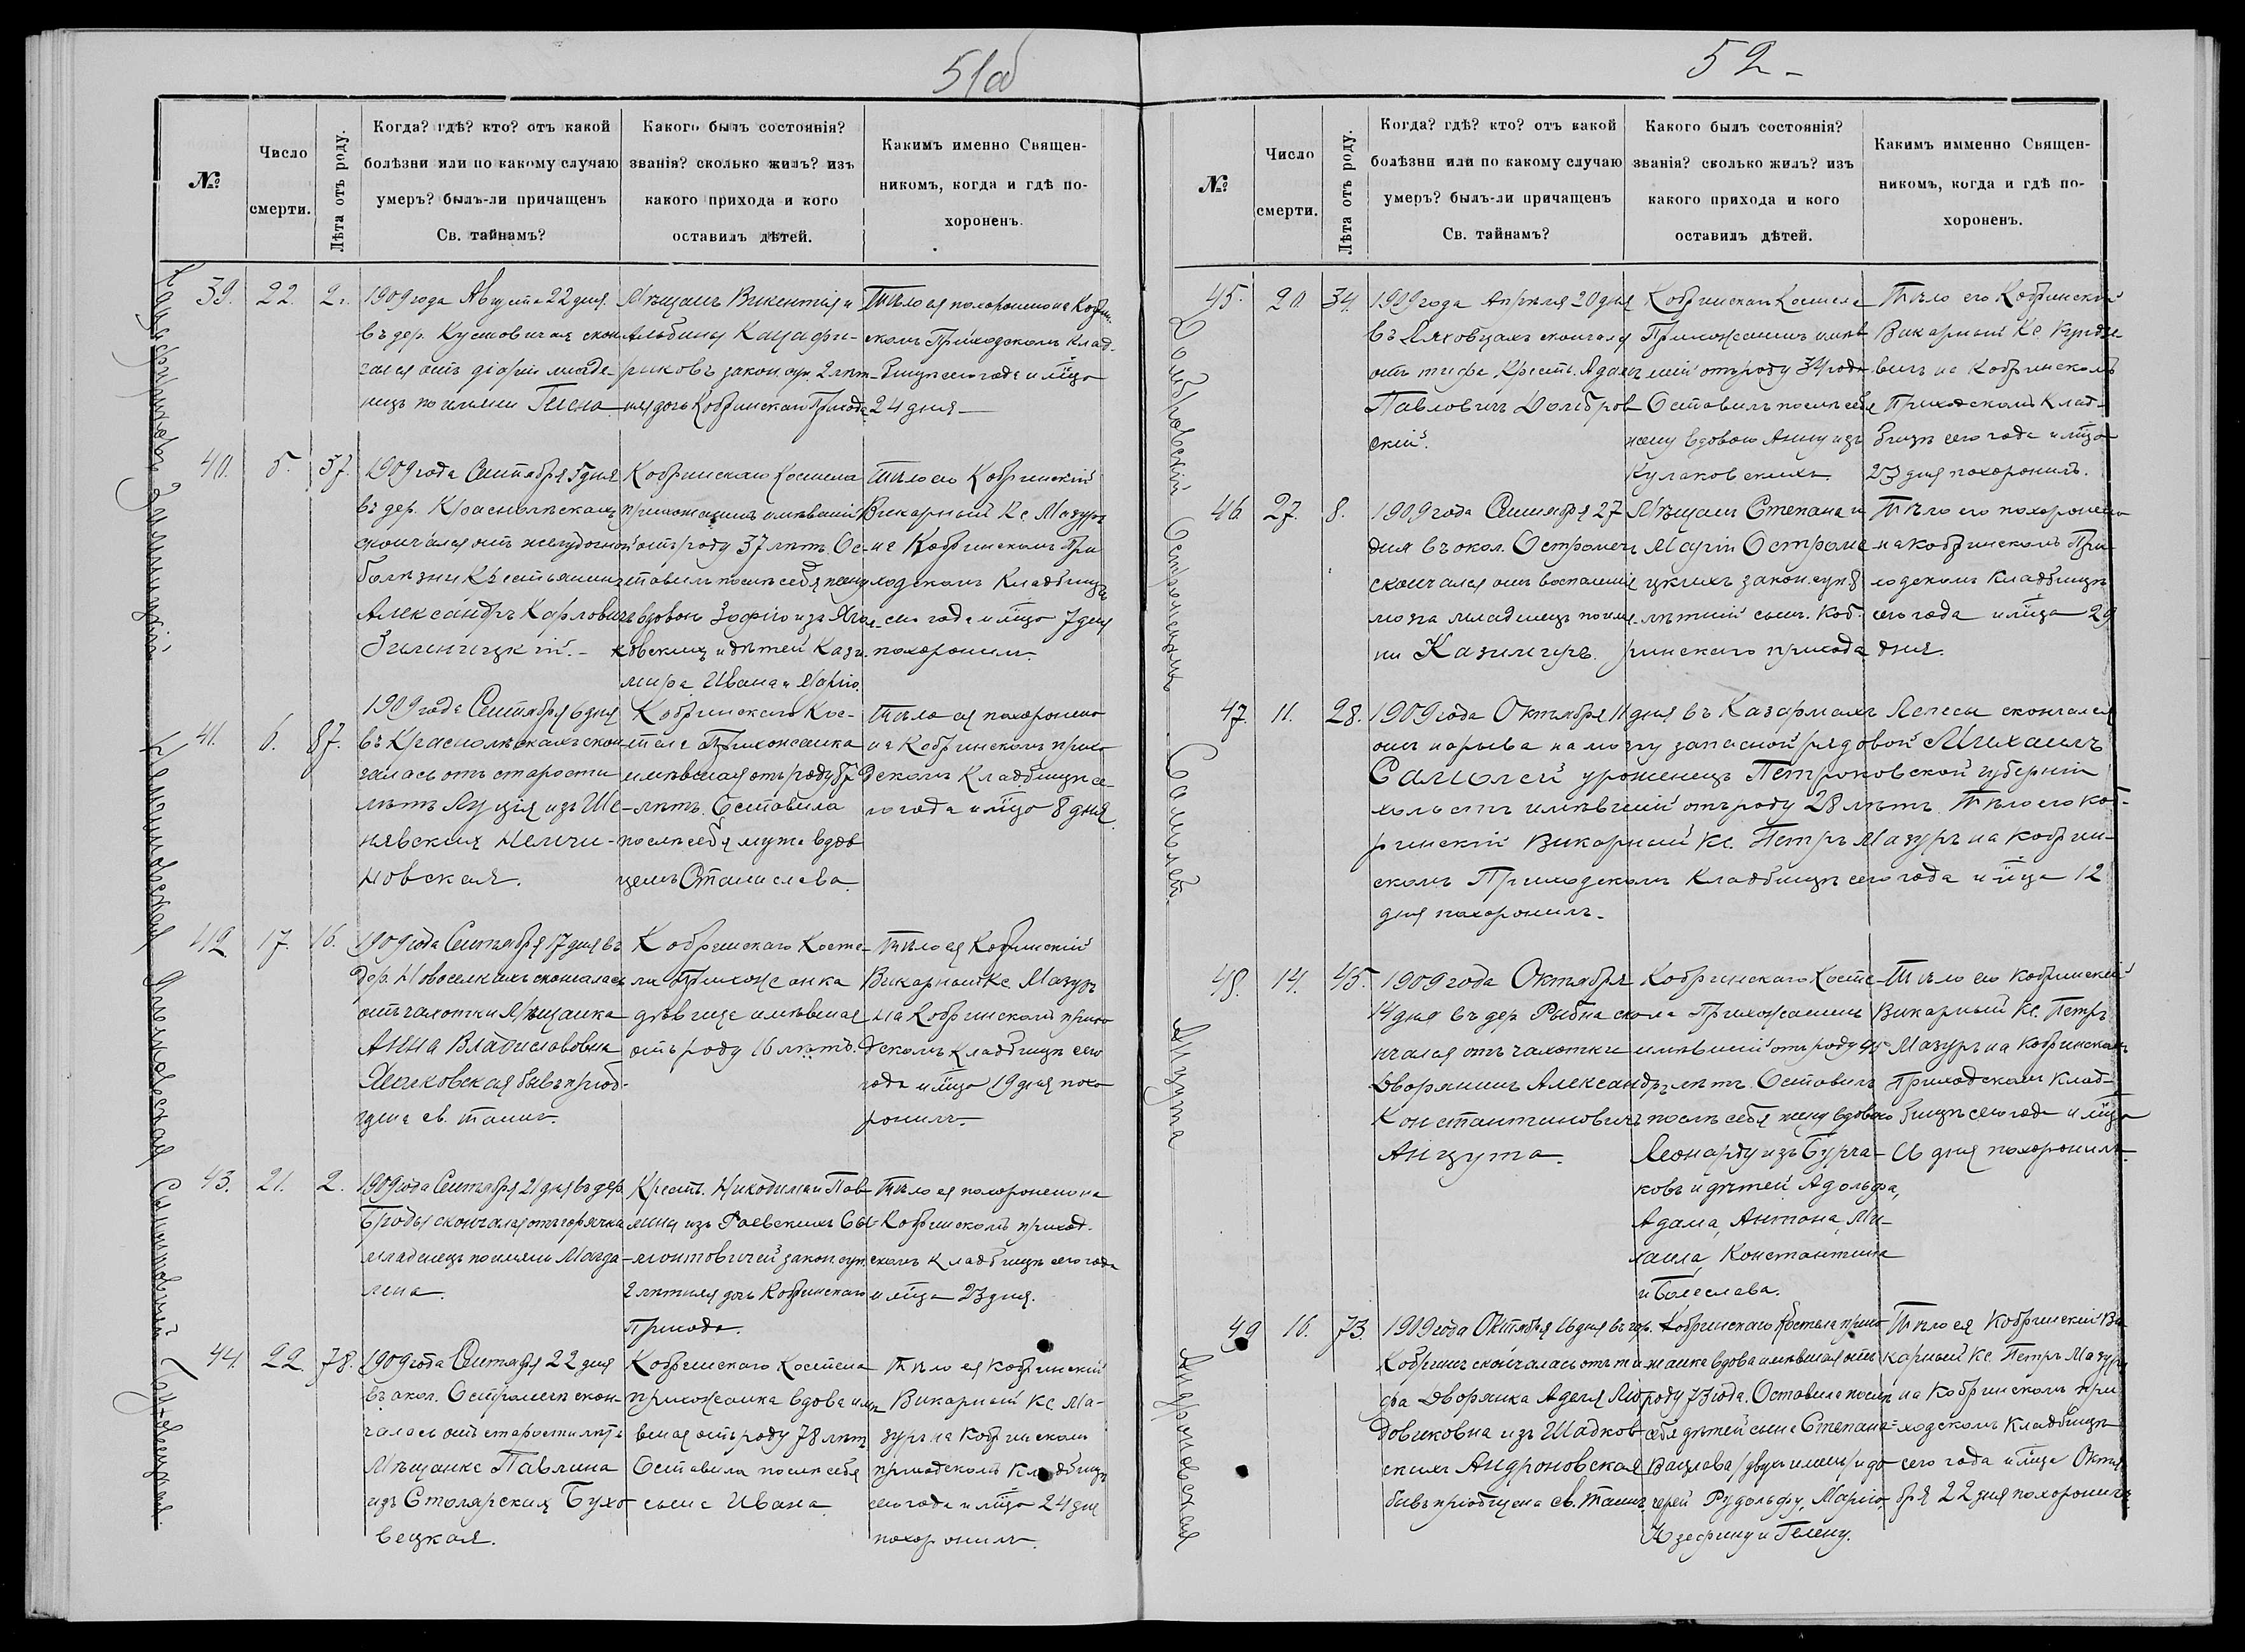 51об
№
Число
смерти.
Лѣта отъ роду.
Когда? гдѣ? кто? отъ какой
болѣзни или по какому случаю
умеръ? былъ-ли причащенъ
Св. тайнамъ?
Какого былъ состоянія?
званія? сколько жилъ? изъ
какого прихода и кого
оставилъ дѣтей.
Какимъ именно Священ-
никомъ, когда и гдѣ по-
хороненъ.
39. 22. 2.
1909 года Августа 22 дня
въ дер. Кустовичах скон
чался отъ младе
нецъ по имени
Мѣщанъ Викентія и
Альбины
риковъ закон. суп. 2 лѣт-
няя дочь Кобринскаго Прихода
Тѣло ея похоронено на Кобрин-
скомъ Приходскомъ Клад-
бищѣ сего года и м̃ца
24 дня —
40. 5. 37.
1909 года Сентября 5 дня
въ дер. Краснолѣскахъ
скончался отъ желудочной
болѣзни Крестьянинъ
Александръ Карловичъ
Зиленчицкій. -
Кобринскаго Костела
прихожанинъ имѣвшій
отъ роду 37 лѣтъ. Ос-
тавилъ послѣ себя жену
вдовою Зофію изъ
ковскихъ и дѣтей Кази-
мира, Ивана и Марію.
Тѣло его Кобринскій
Викарный Кс. Мазуръ
на Кобринскомъ При
ходскомъ Кладбищѣ
сего года и м̃ца 7 дня
похоронилъ.
41. 6. 87.
1909 года Сентября 6 дня
въ Краснолѣскахъ скон
чалась отъ старости
лѣтъ Луція изъ Ше-
нявскихъ Немчи-
новская.
Кобринскаго Кос-
тела Прихожанка
имѣвшая отъ роду 87
лѣтъ. Оставила
послѣ себя мужа вдов
цемъ Станислава.
Тѣло ея похоронено
на Кобринскомъ прихо
дскомъ Кладбищѣ се-
го года и м̃ца 8 дня.
42 17. 16.
1909 года Сентября 17 дня въ
дер. Новоселкахъ скончалась
отъ чахотки Мѣщанка
Анна Владиславовна
бывъ пріоб-
щена св. таинъ.
Кобринскаго Косте-
ла Прихожанка
дѣвица имѣвшая
отъ роду 16 лѣтъ.
Тѣло ея Кобринскій
Викарный Кс. Мазуръ
на Кобринскомъ прихо
дскомъ Кладбищѣ сего
года и м̃ца 19 дня похо
ронилъ.
43. 21. 2.
1909 года Сентября 21 дня въ дер.
Броды скончался отъ горячки
младенецъ по имени Магда-
лена.
Крест. Никодима и Пав-
лины изъ Раевскихъ Сы-
монтовичей закон. суп.
2 лѣтняя дочь Кобринскаго
Прихода.
Тѣло ея похоронено на
Кобринскомъ приход-
скомъ Кладбищѣ сего года
и м̃ца 23 дня.
44. 22. 78.
1909 года Сентября 22 дня
въ окол. Остромечѣ скон-
чалась отъ старости лѣтъ
Мѣщанка Павлина
изъ Столярскихъ Бухо
вецкая.
Кобринскаго Костела
прихожанка вдова имѣ
вшая отъ роду 78 лѣтъ
Оставила послѣ себя
сына Ивана
Тѣло ея Кобринскій
Викарный Кс. Ма-
зуръ на Кобринскомъ
приходскомъ Кладбищѣ
сего года и м̃ца 24 дня
похоронилъ.
52 -
№
Число
смерти.
Лѣта отъ роду.
Когда? гдѣ? кто? отъ какой
болѣзни или по какому случаю
умеръ? былъ-ли причащенъ
Св. тайнамъ?
Какого былъ состоянія?
званія? сколько жилъ? изъ
какого прихода и кого
оставилъ дѣтей.
Какимъ имменно Священ-
никомъ, когда и гдѣ по-
хороненъ.
45. 20. 34.
1909 года Апрѣля 20 дня
въ Ляховцахъ скончался
отъ тифа Крест. Адамъ
Павловичъ Домбров-
скій.
Кобринскаго Костела
Прихожанинъ имѣв
шій отъ роду 34 года
Оставилъ послѣ себя
жену вдовою Анну изъ
Кулаковскихъ.
Тѣло его Кобринскій
Викарный Кс.
на Кобринскомъ
Приходскомъ Клад-
бищѣ сего года и м̃ца
23 дня похоронилъ.
46. 27. 8.
1909 года Сентября 27
дня въ окол. Остромечѣ
скончался отъ воспаленія
мозга младенецъ по име-
ни Казимиръ.
Мѣщанъ Степана и
Маріи Остроме-
цкихъ закон. суп. 8
лѣтній сынъ. Коб-
ринскаго прихода
Тѣло его похоронено
на Кобринскомъ При-
ходскомъ Кладбищѣ
сего года и м̃ца 29
дня.
47. 11. 28.
1909 года Октября 11 дня въ Казармахъ Лепесы скончался
отъ нарыва на мозгу запасной рядовой Михаилъ
Самолей уроженецъ Петроковской губерніи
холостъ имѣвшій отъ роду 28 лѣтъ. Тѣло его Коб-
ринскій Викарный Кс. Петръ Мазуръ на Кобрин-
скомъ Приходскомъ Кладбищѣ сего года и м̃ца 12
дня похоронилъ.
48. 14. 45.
1909 года Октября
14 дня въ дер. Рыбна скон
нчался отъ чахотки
Дворянинъ Александръ
Константиновичъ
Анцута.
Кобринскаго Косте-
ла Прихожанинъ
имѣвшій отъ роду 45
лѣтъ. Оставилъ
послѣ себя жену вдовою
Леонарду изъ Бурча-
ковъ и дѣтей Адольфа,
Адама, Антона, Ми-
хаила, Константина
и Болеслава.
Тѣло его Кобринскій
Викарный Кс. Петръ
Мазуръ на Кобринскомъ
Приходскомъ Клад-
бищѣ сего года и м̃ца
16 дня похоронилъ.
49 16. 73
1909 года Октября 16 дня въ гор.
Кобринѣ скончалась отъ ти
фа Дворянка Аделя Лю
довиковна изъ Шадков-
скихъ Андроновская
бывъ пріобщена св. таинъ.
Кобринскаго Костела прихо
жанка вдова имѣвшая отъ
роду 73 года. Оставила послѣ
себя дѣтей сына Степана-
Вацлава /двухъ именъ/ и до
черей Рудольфу, Марію,
Юзефину и Гелену.
Тѣло ея Кобринскій Ви-
карный Кс. Петръ Мазуръ
на Кобринскомъ при
ходскомъ Кладбищѣ
сего года и м̃ца Октя
бря 22 дня похоронилъ.
Домбровскій Остромецкій Самолей Анцута Андроновская